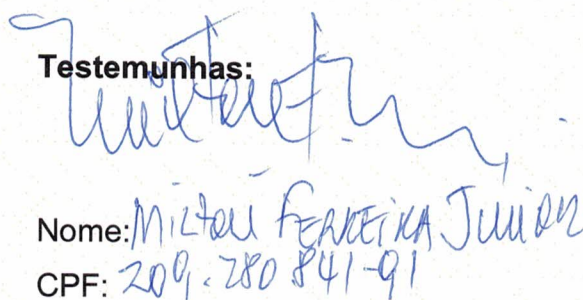 Testemunhas:
Nome: Milton FERREIRA Junior
CPF: 209.280 841-91